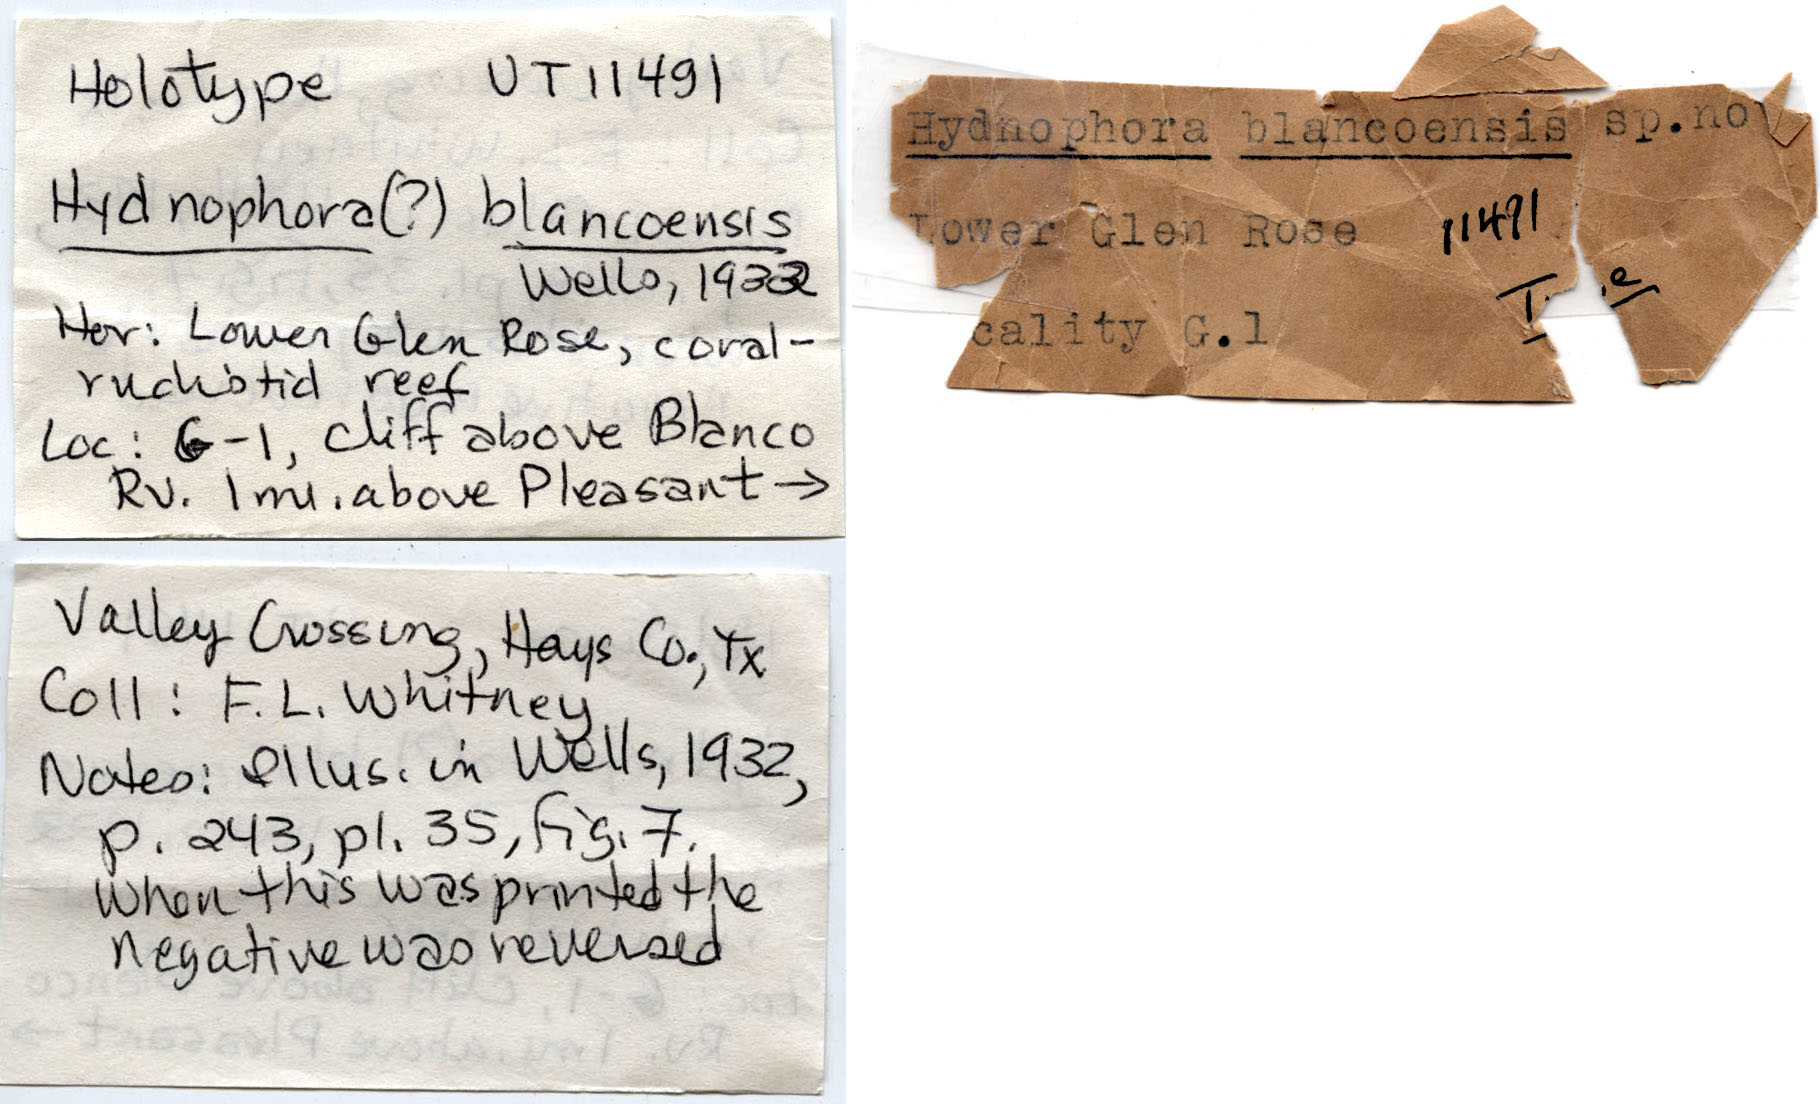 Holotype UT11491
Hydnophora(?) blancoensis
Wells, 1932
Hor: Lower Glen Rose, coral-
rudistid reef
Loc: G-1, cliff above Blanco
Rv. 1 mi. above Pleasant →
Valley Crossing, Hays Co., Tx
Coll: F.L. Whitney
Notes: Illus. in Wells, 1932,
p. 243, pl. 35, fig. 7.
When this was printed the
negative was reversed
Hydnophora blancoensis sp.no
Lower Glen Rose 11491
cality G.1